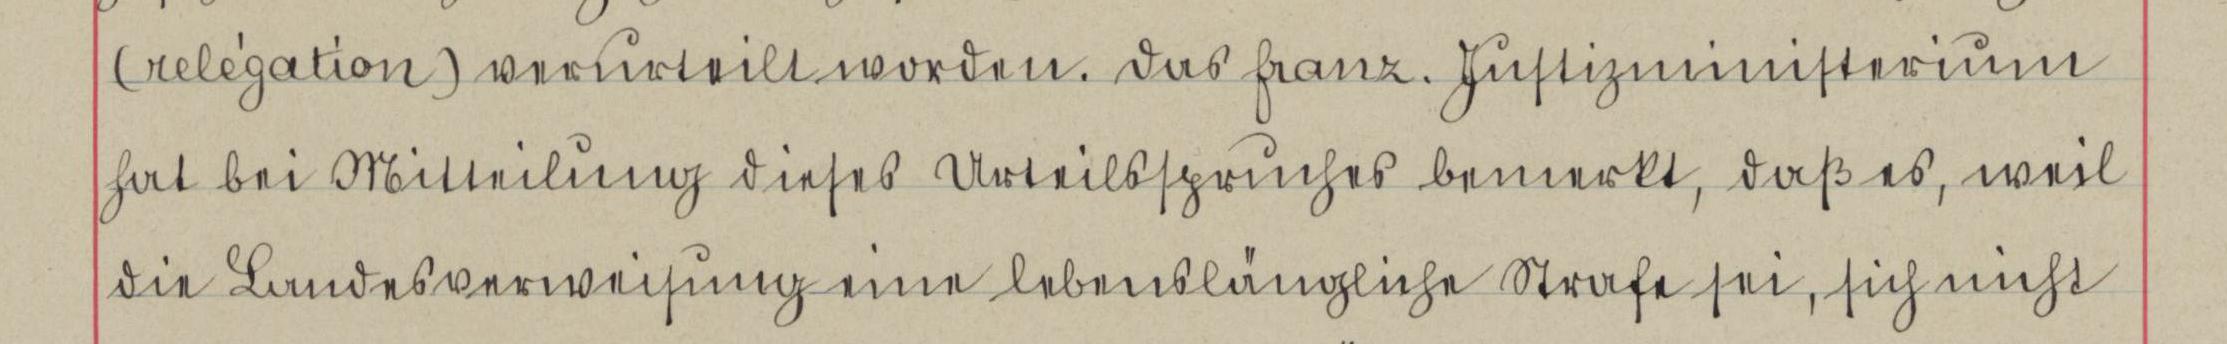 (relégation) verurteilt worden. Das franz. Justizministerium
hat bei Mitteilung dieses Urteilsspruches bemerkt, daß es, weil
die Landesverweisung eine lebenslängliche Strafe sei, sich nicht